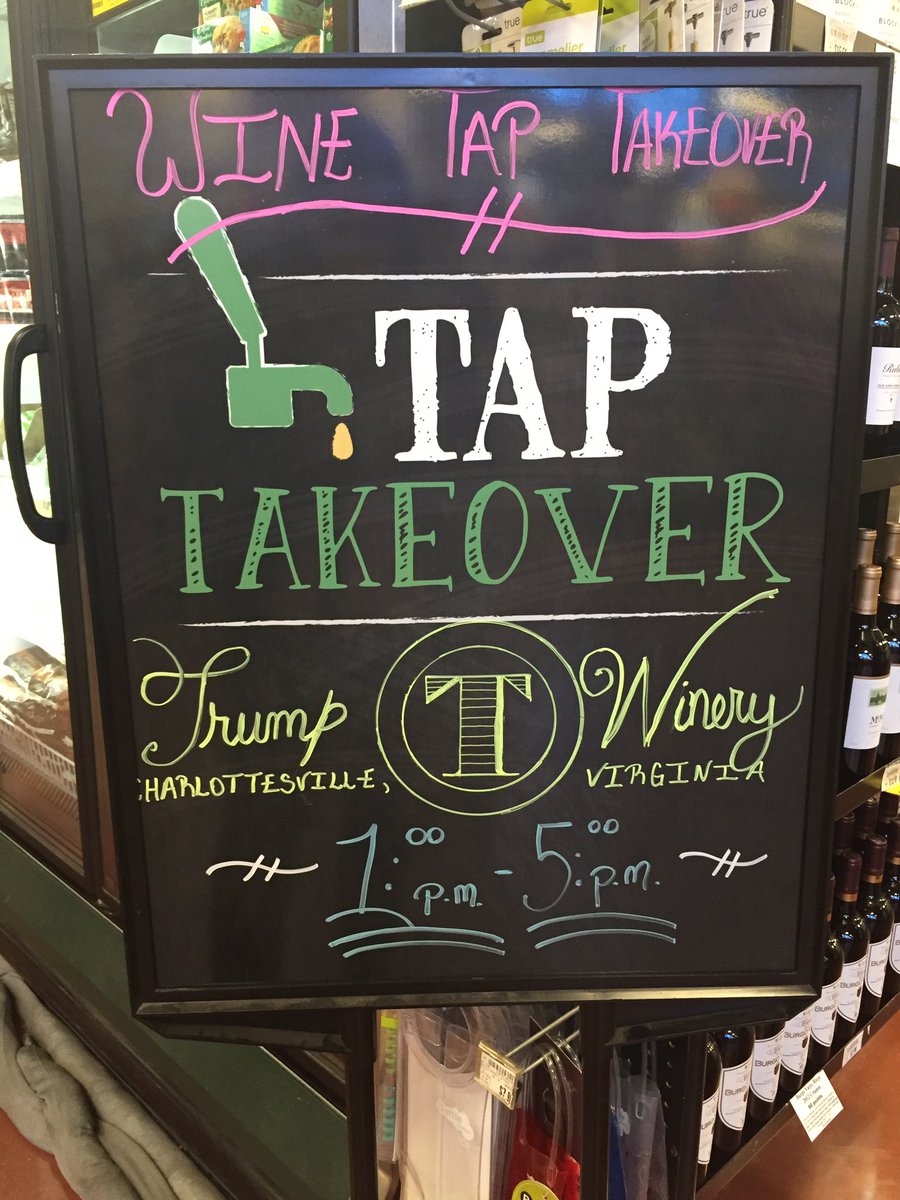 true
true
WINE TAP TAKEOVER
TAP
TAKEOVER
Trump T Winery
CHARLOTTESVILLE, VIRGINIA
1:00 p.m. - 5:00 p.m.